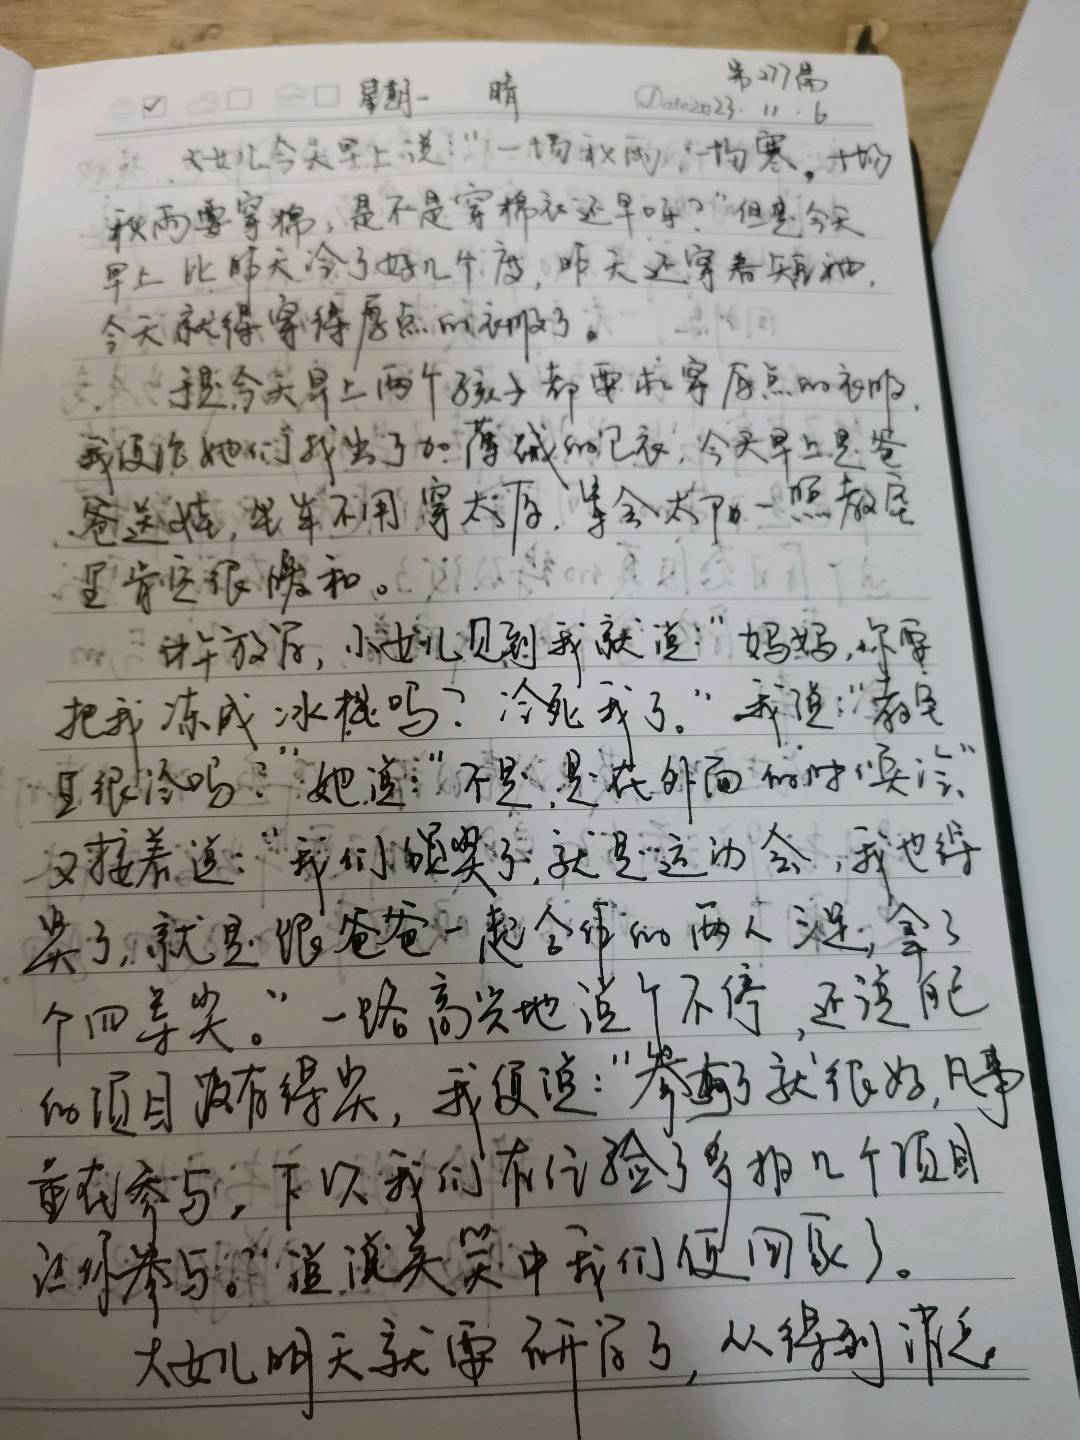 第277篇
星期一 晴 Date2023.11.6
大女儿今天早上说:"一场秋雨一场寒,十场
秋雨要穿棉,是不是穿棉衣还早呀?"但是今天
早上比昨天冷了好几个度,昨天还穿着短袖,
今天就得穿得厚点的衣服了。
于是今天早上两个孩子都要求穿厚点的衣服,
我便给她们找出了加薄绒的卫衣,今天早上是爸
爸送娃,坐车不用穿太厚,等会太阳一照教室
里肯定很暖和。
中午放学,小女儿见到我就说:"妈妈,你要
把我冻成冰棍吗?冷死我了。"我说:"教室
里很冷吗?"她说:"不是,是在外面的时候冷,"
又接着说:"我们颁奖了,就是运动会,我也得
奖了,就是跟爸爸一起合作的两人三足,拿了
个四等奖。"一路高兴地说个不停,还说自己
的项目没有得奖,我便说:"参与了就很好,凡事
重在参与,下次我们有经验了多报几个项目
让你参与。"说说笑笑中我们便回家了。
大女儿明天就要研学了,从得到消息